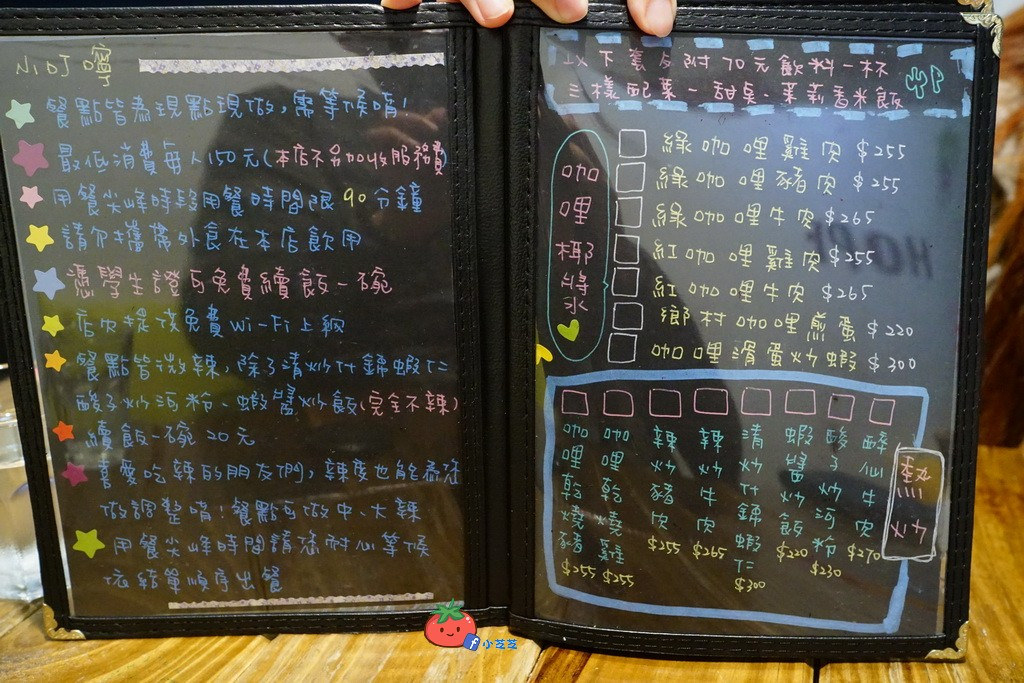 叮嚀
餐點皆為現點現做，需等候唷！
最低消費每人150元(本店不另加收服務費)
用餐尖峰時段用餐時間限90分鐘
請勿攜帶外食在本店飲用
憑學生證可免費續飯一碗
店內提供免費Wi-Fi上網
餐點皆微辣，除了清炒什錦蝦仁
酸子炒河粉、蝦醬炒飯(完全不辣)
續飯一碗20元
喜愛吃辣的朋友們，辣度也能為您
做調整唷！餐點可做中、大辣
用餐尖峰時間請您耐心等候
依結單順序出餐
以下套餐附70元飲料一杯
三樣配菜、甜點、茉莉香米飯
咖哩椰漿
綠咖哩雞肉 $255
綠咖哩豬肉 $255
綠咖哩牛肉 $265
紅咖哩雞肉 $255
紅咖哩牛肉 $265
鄉村咖哩煎蛋 $220
咖哩滑蛋炒蝦 $300
熱炒
咖哩乾燒豬 $255
咖哩乾燒雞 $255
辣炒豬肉 $255
辣炒牛肉 $265
清炒什錦蝦仁 $300
蝦醬炒飯 $220
酸子炒河粉 $230
醉仙牛肉 $270
小芝芝